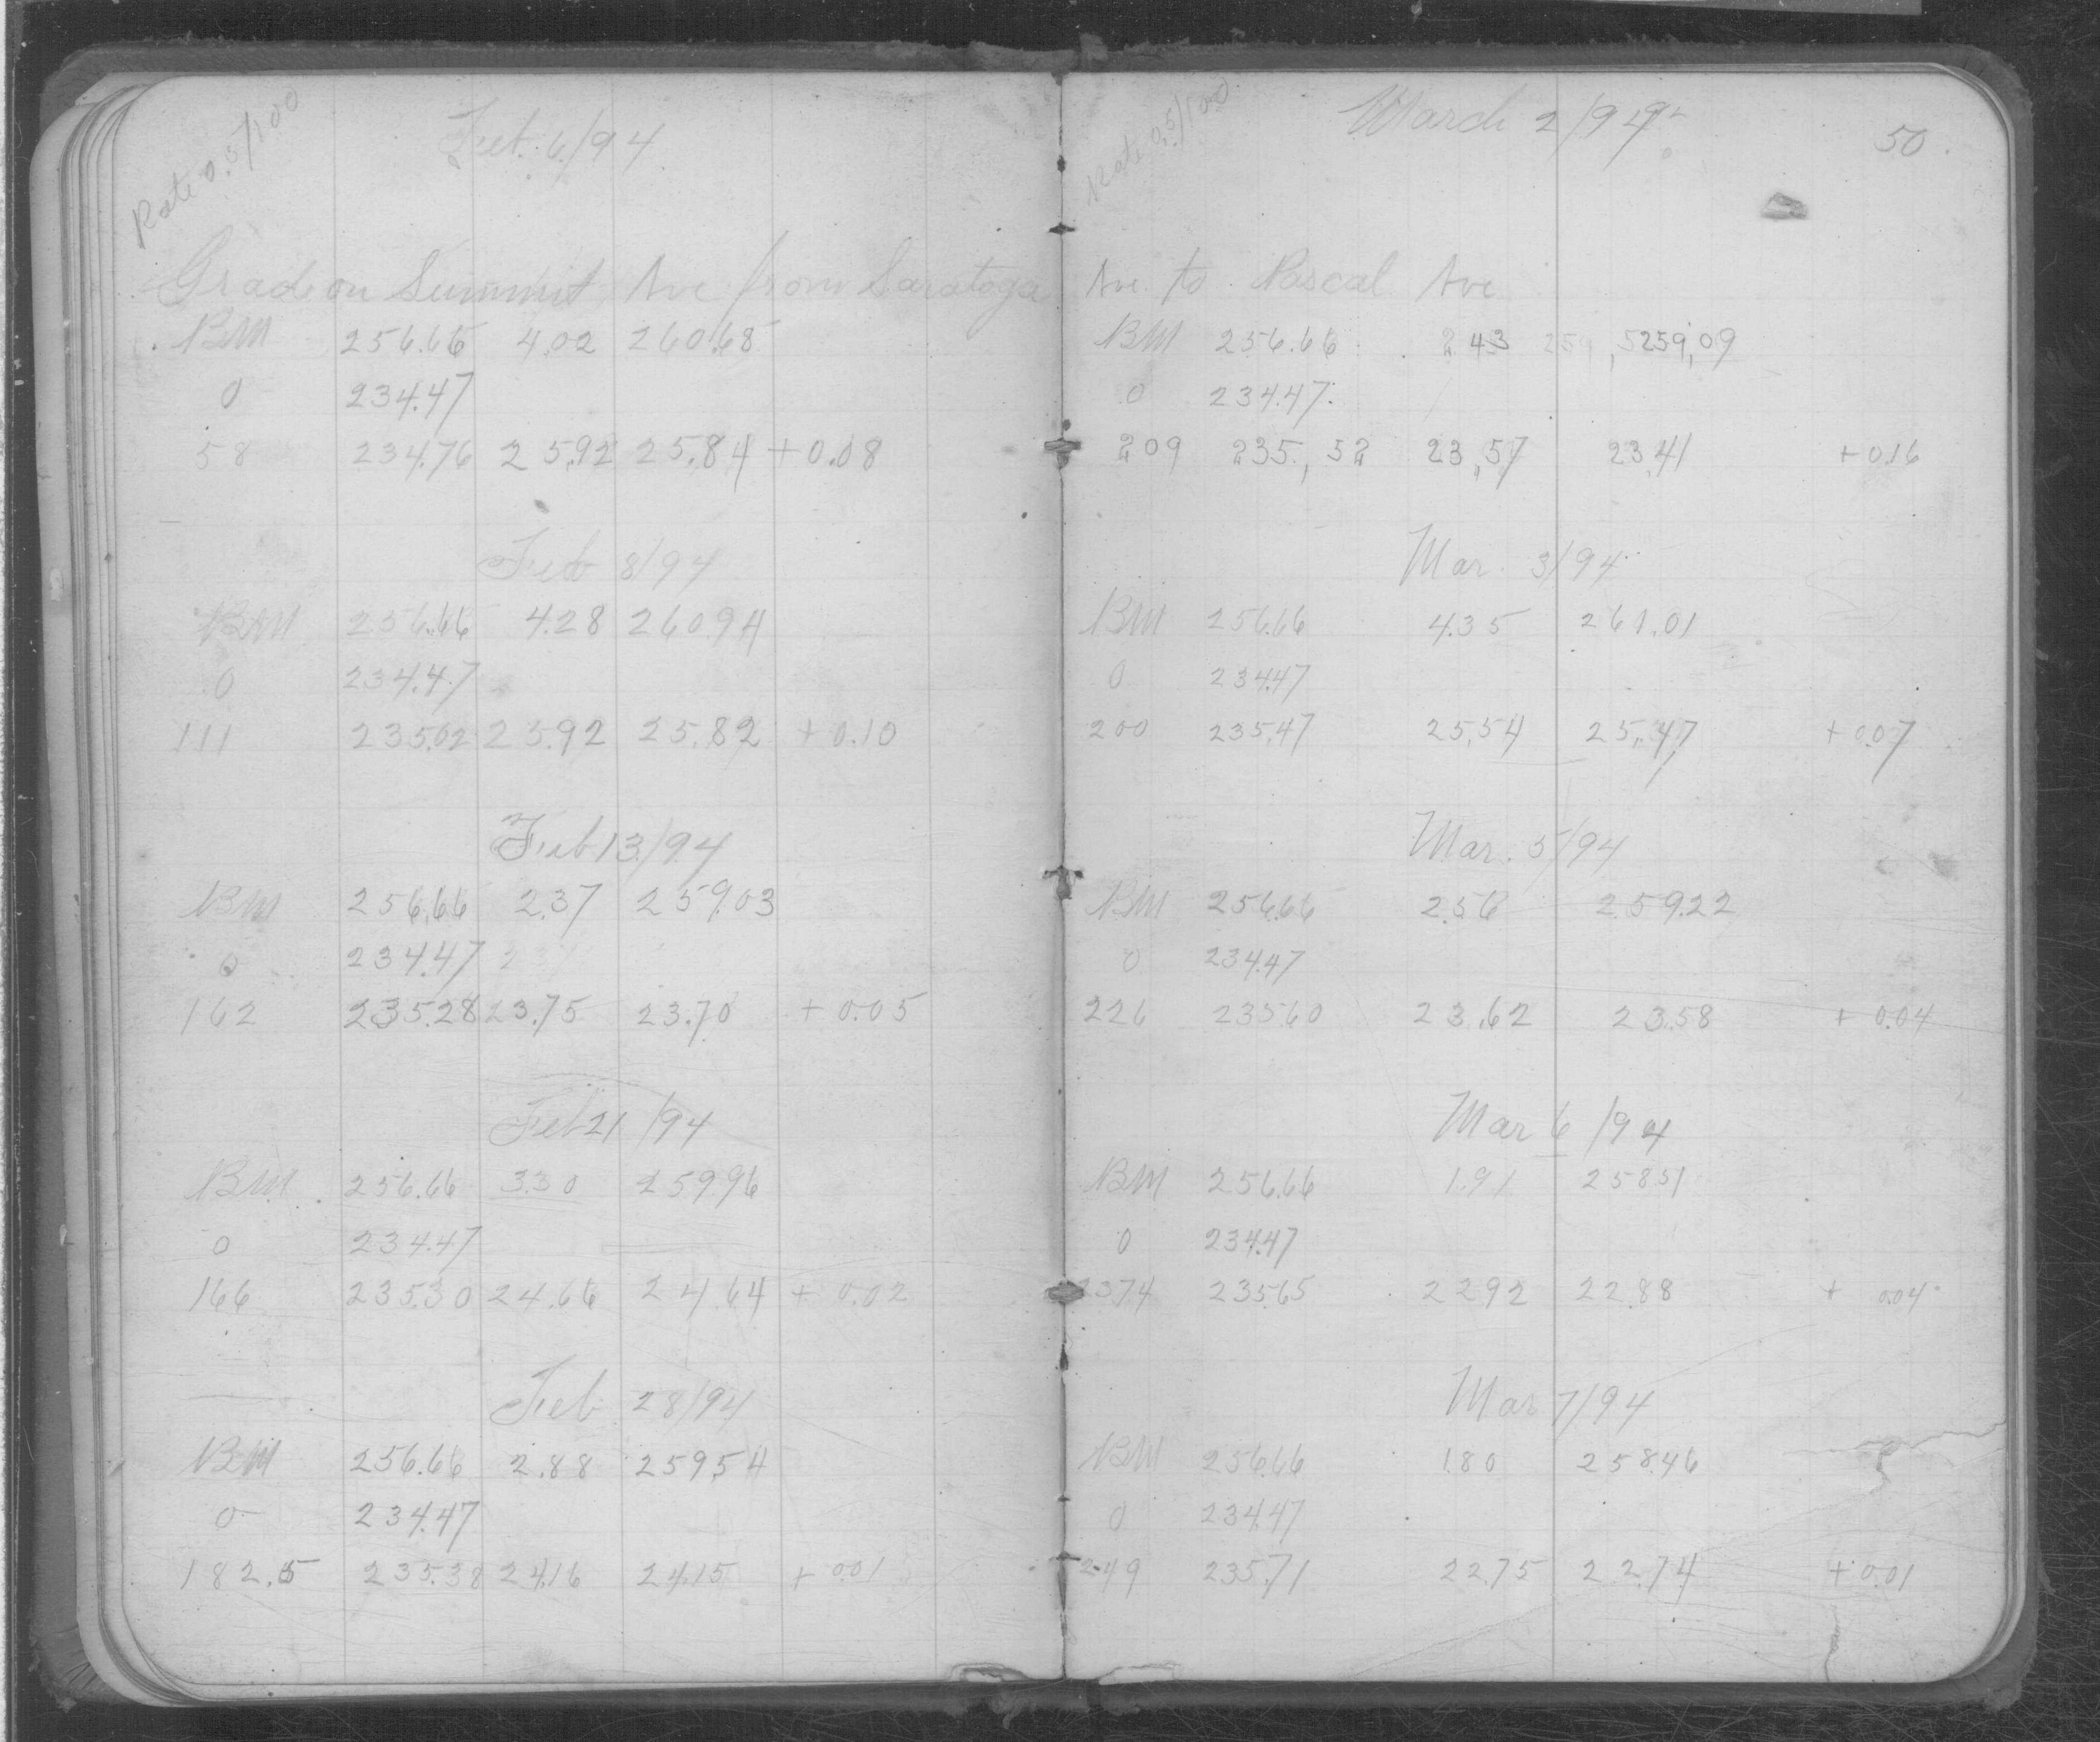 Rate 0.5/100
Feb. 6/94
Grade on Summit Ave from Saratoga
BM 256.66 4.02 260.68
0 234.47
58 234.76 25.92 25.84 +0.08
Feb 8/94
BM 256.66 4.28 260.94
0 234.47
111 235.02 25.92 25.82 +0.10
Feb 13/94
BM 256.66 2.37 259.03
0 234.47
162 235.28 23.75 23.70 +0.05
Feb 21/94
BM 256.66 3.30 259.96
0 234.47
166 235.30 24.66 24.64 +0.02
Feb 28/94
BM 256.66 2.88 259.54
0 234.47
182.5 235.38 24.16 24.15 +0.01
Rate 0.5/100
March 2/94
50
Ave. to Pascal Ave
BM 256.66 2.43 259,09
0 234.47
209 235.,52 23,57 23.41 +0.16
Mar. 3/94
BM 256.66 4.35 261.01
0 234.47
200 235.47 25.54 25.47 +0.07
Mar. 5/94
BM 256.66 2.56 259.22
0 234.47
226 235.60 23.62 23.58 +0.04
Mar 6/94
BM 256.66 1.91 258.51
0 234.47
237.4 235.65 22.92 22.88 +0.04
Mar 7/94
BM 256.66 1.80 258.46
0 234.47
249 235.71 22.75 22.74 +0.01